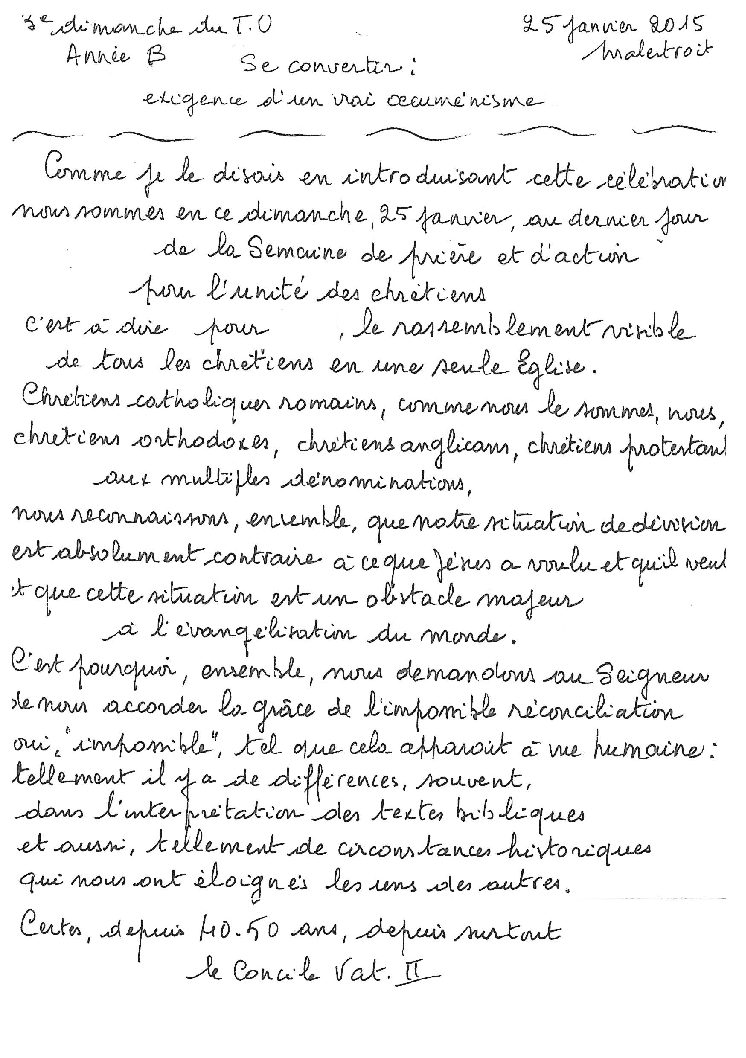 3e dimanche du T.O
25 janvier 2015
Année B
Malestroit
Se convertir :
exigence d'un vrai œcuménisme
Comme je le disais en introduisant cette célébration
nous sommes en ce dimanche, 25 janvier, au dernier jour
de la Semaine de prière et d'action
pour l'unité des chrétiens
c'est à dire pour , le rassemblement visible
de tous les chrétiens en une seule Eglise.
Chrétiens catholiques romains, comme nous le sommes, nous,
chrétiens orthodoxes, chrétiens anglicans, chrétiens protestant
aux multiples dénominations,
nous reconnaissons, ensemble, que notre situation de division
est absolument contraire à ce que Jésus a voulu et qu'il veut
et que cette situation est un obstacle majeur
à l'évangélisation du monde.
C'est pourquoi, ensemble, nous demandons au Seigneur
de nous accorder la grâce de l'impossible réconciliation
oui, "impossible", tel que cela apparait à vue humaine :
tellement il y a de différences, souvent,
dans l'interprétation des textes bibliques
et aussi, tellement de circonstances historiques
qui nous ont éloignés les uns des autres.
Certes, depuis 40-50 ans, depuis surtout
le Concile Vat. II